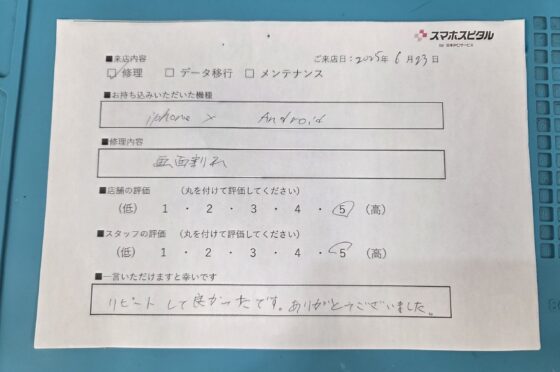 スマホスピタル
■来店内容
ご来店日：2025年 6月23日
☑修理 □データ移行 □メンテナンス
■お持ち込みいただいた機種
iphone X Android
■修理内容
画面割れ
■店舗の評価 （丸を付けて評価してください）
（低） 1 ・ 2 ・ 3 ・ 4 ・ 5 （高）
■スタッフの評価 （丸を付けて評価してください）
（低） 1 ・ 2 ・ 3 ・ 4 ・ 5 （高）
■一言いただけますと幸いです
リピートして良かったです。ありがとうございました。